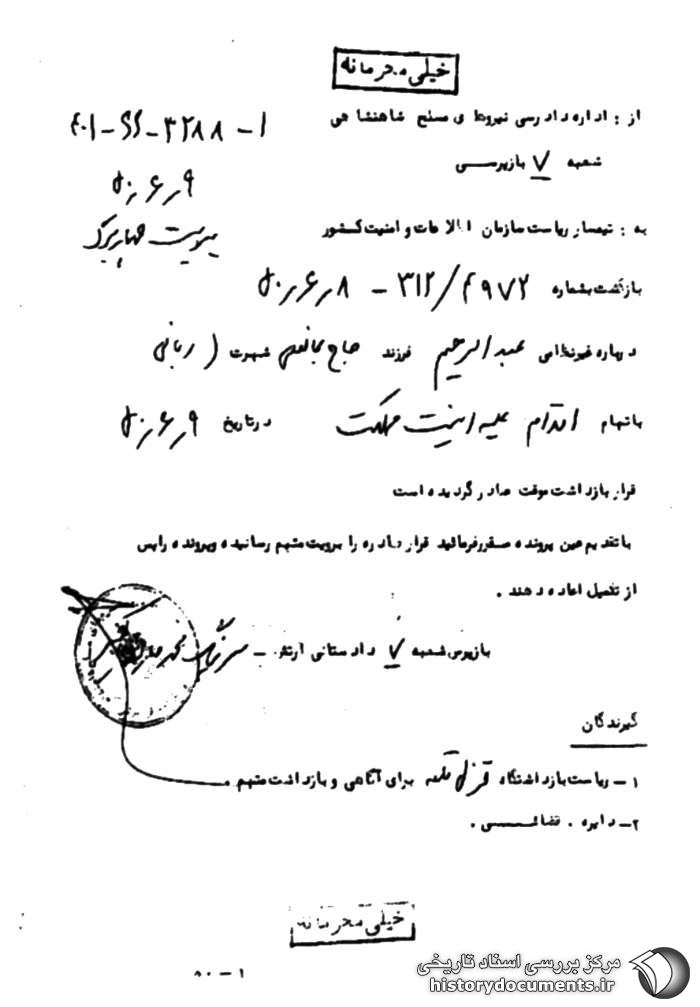 خیلی محرمانه
از : اداره دادرسی نیروهای مسلح شاهنشاهی
شعبه ۷ بازپرسی
۴۰۱-۶۶-۳۲۸۸-۱
۵۰٫۶٫۹
پیوست چهار برگ
به : تیمسار ریاست سازمان اطلاعات و امنیت کشور
بازگشت بشماره ۳۱۲/۴۹۷۲ - ۵۰٫۶٫۸
درباره غیرنظامی عبدالرحیم فرزند حاج شهرت ( ربانی
باتهام اقدام علیه امنیت مملکت در تاریخ ۵۰٫۶٫۹
قرار بازداشت موقت صادر گردیده است
با تقدیم عین پرونده مقرر فرمائید قرار صادره را برویت متهم رسانیده و پرونده را پس
از تکمیل اعاده دهند .
بازپرس شعبه ۷ دادستانی ارتش - سرهنگ
گیرندگان
۱- ریاست بازداشتگاه قزل قلعه برای آگاهی و بازداشت متهم .
۲- دایره . قضائی .
خیلی محرمانه
۱ - ۸۰
مرکز بررسی اسناد تاریخی
historydocuments.ir